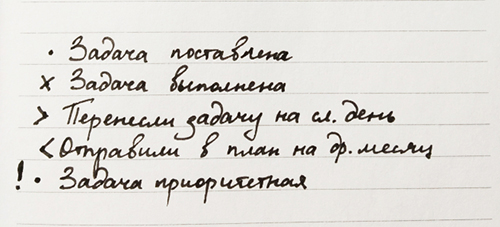 · Задача поставлена
x Задача выполнена
> Перенесли задачу на сл. день
< Отправили в план на др. месяц
! · Задача приоритетная